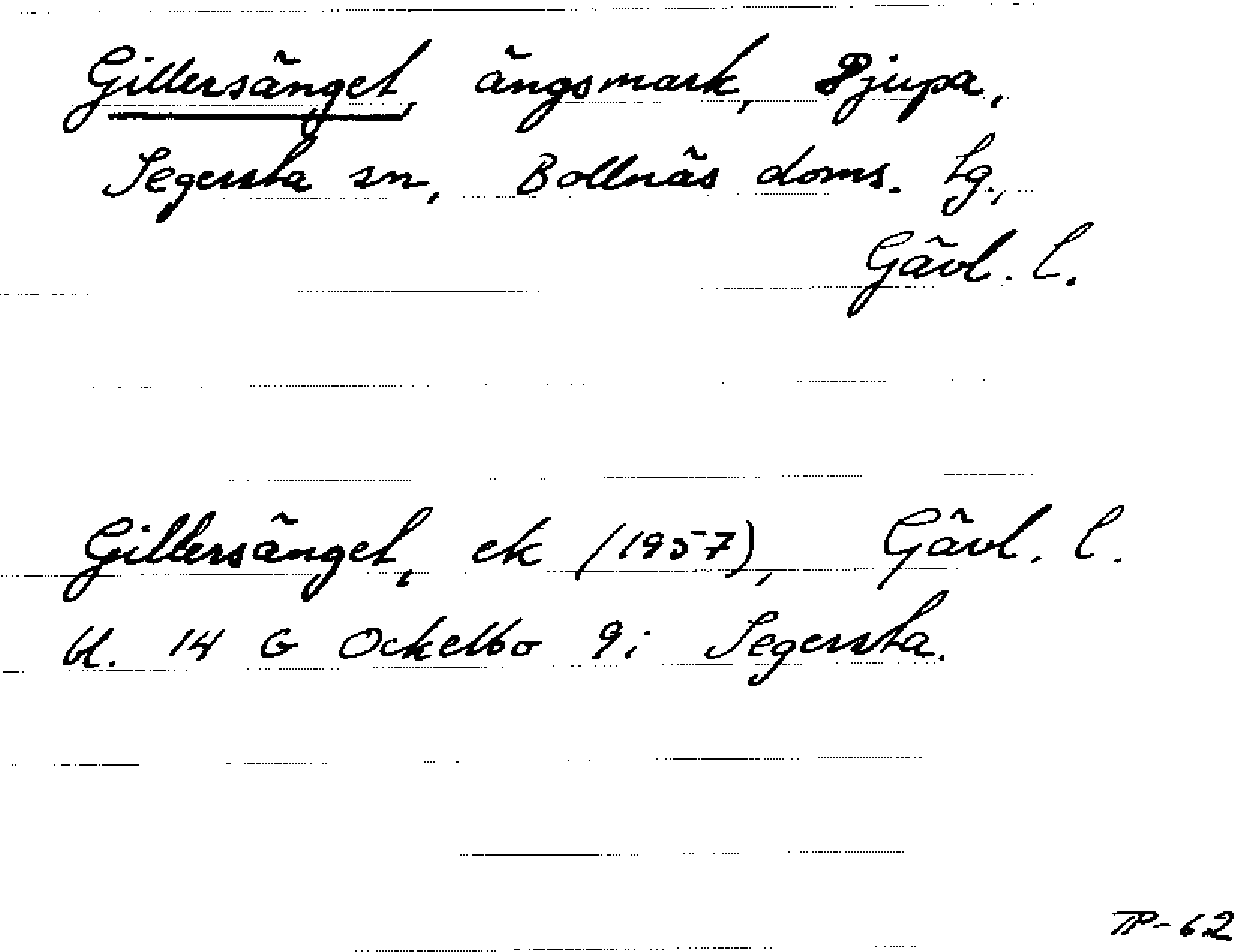 Gillersänget, ängsmark, Djupa,
Segersta sn, Bollnäs doms. tg.,
Gävl. l.
Gillersänget, ek (1957), Gävl. l.
U. 14 G Ockelbo 9i Segersta.
TP-62